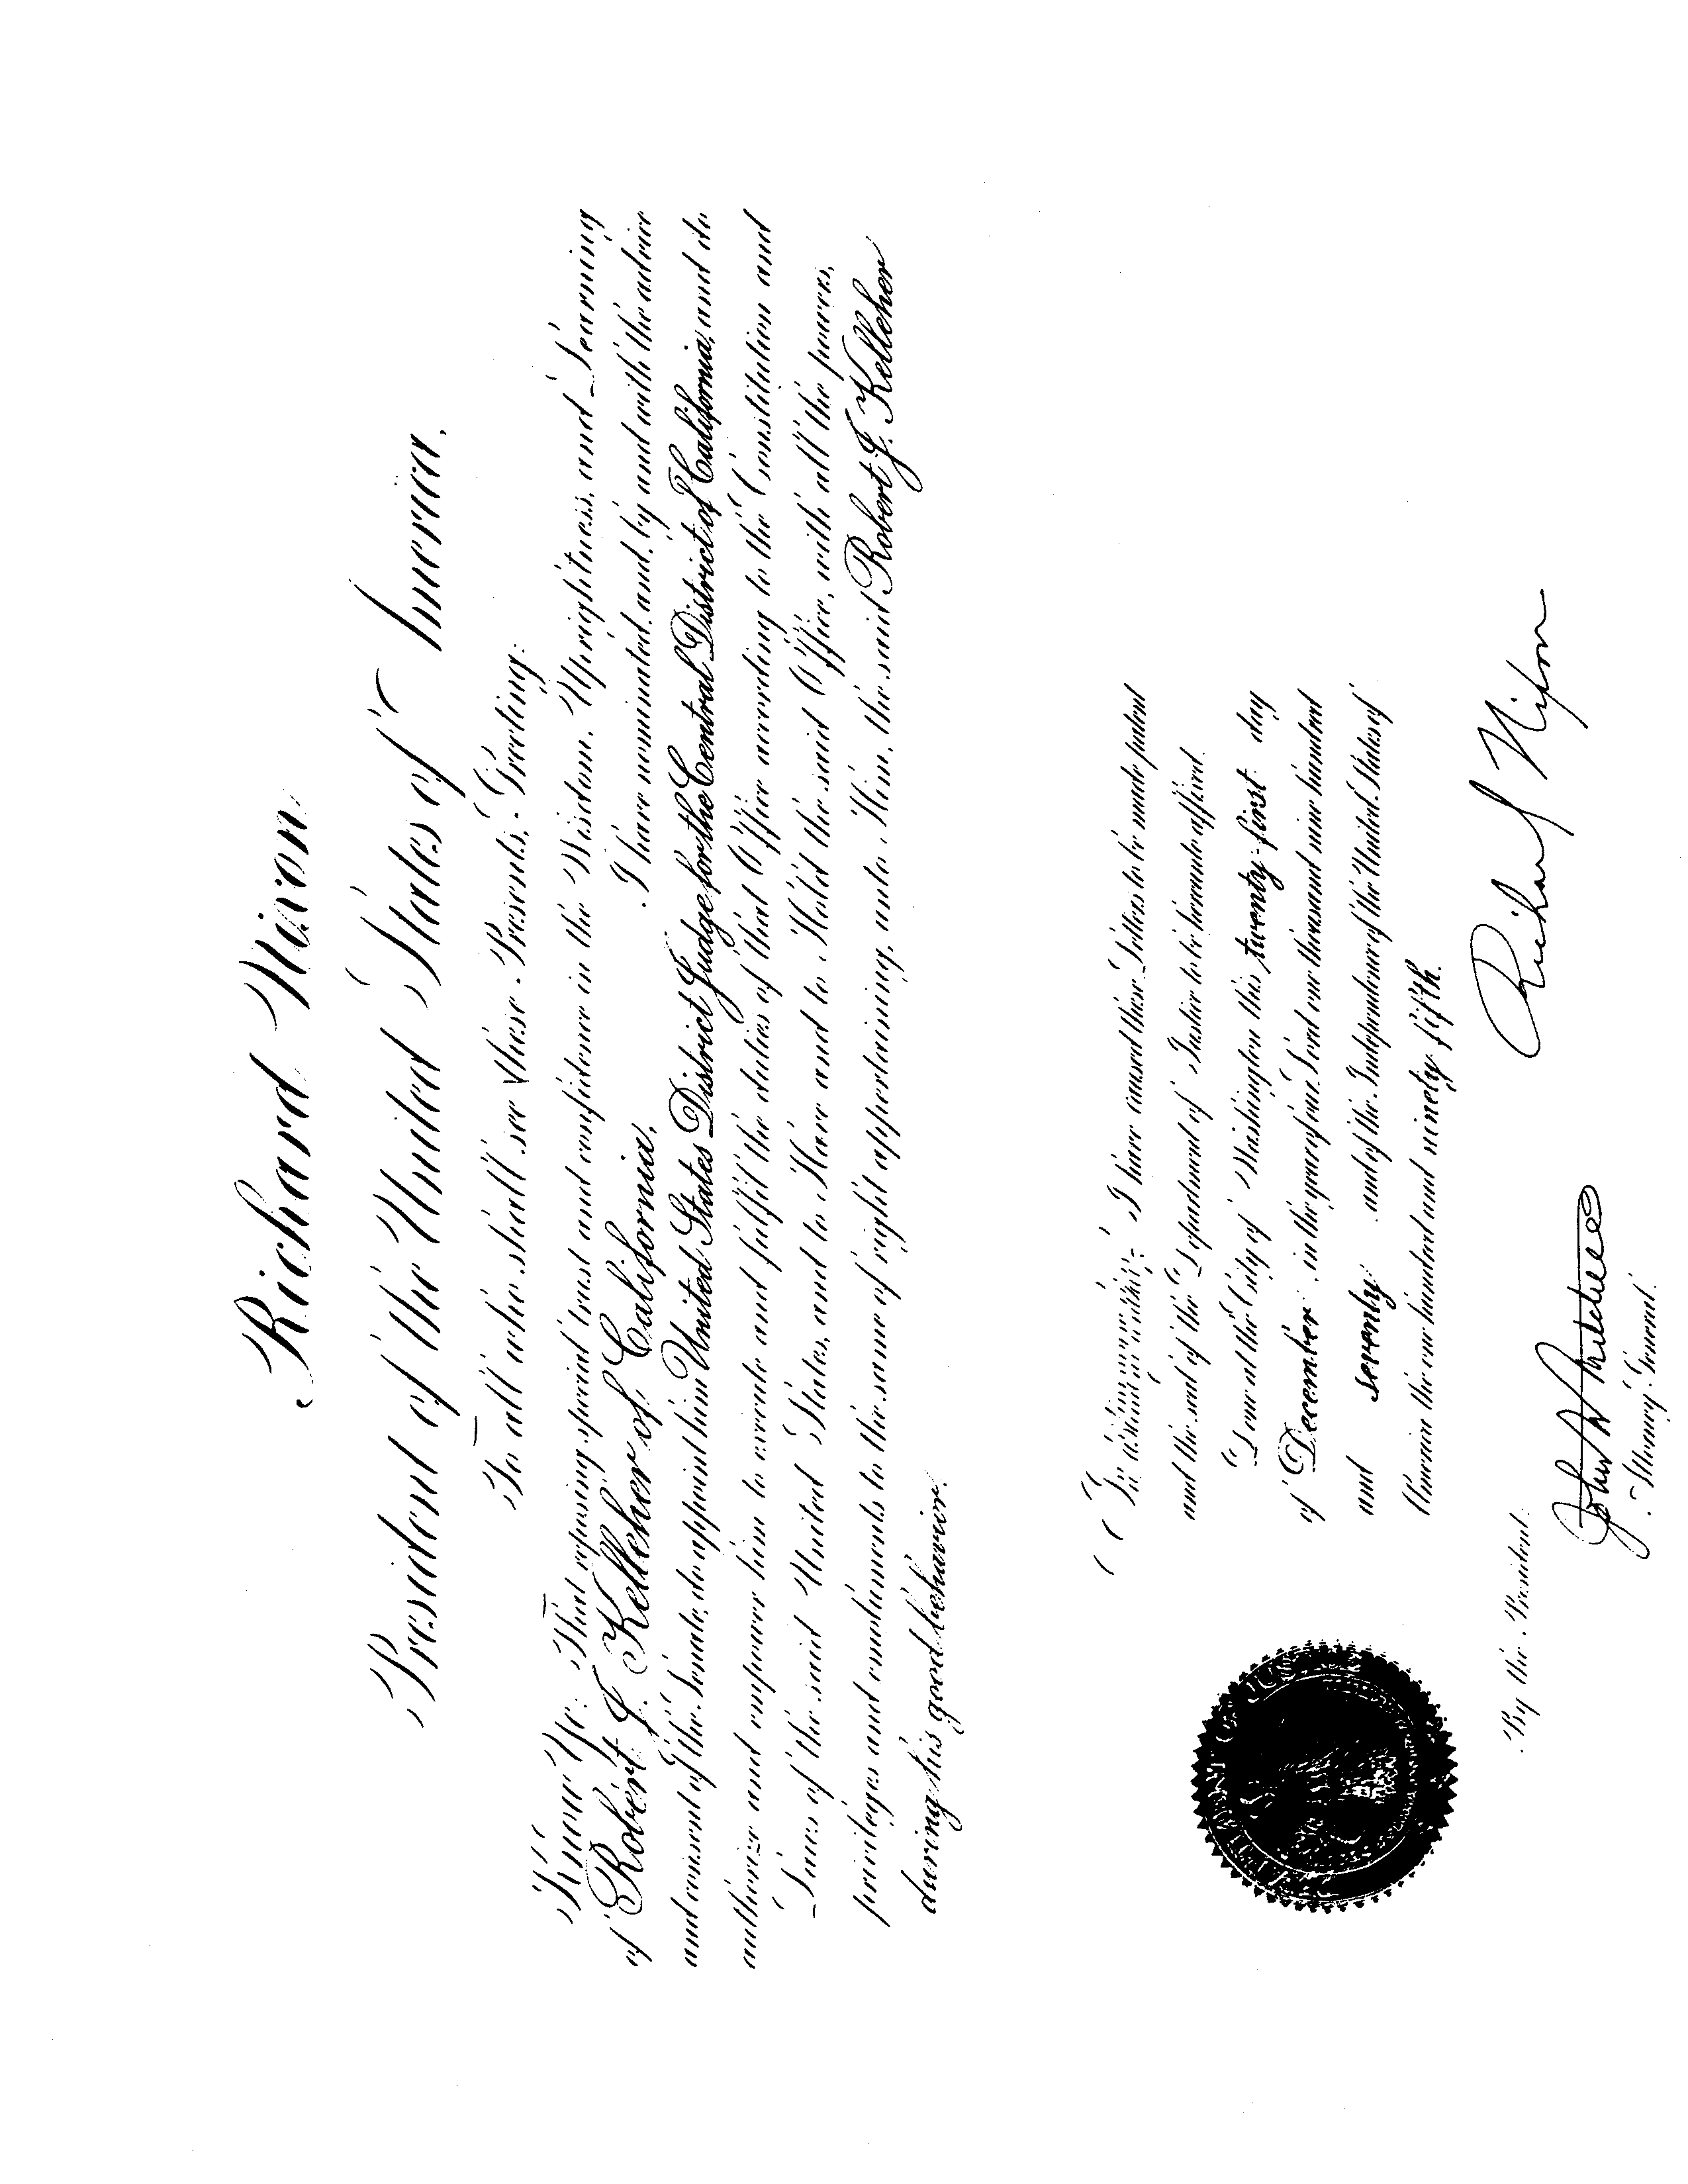 Richard Nixon
President of the United States of America,
To all who shall see these Presents, Greeting:
Know Ye: That reposing special trust and confidence in the Wisdom, Uprightness, and Learning
of Robert J. Kelleher of California, I have nominated, and, by and with the advice
and consent of the Senate, do appoint him United States District Judge for the Central District of California, and do
authorize and empower him to execute and fulfil the duties of that Office according to the Constitution and
Laws of the said United States, and to Have and to Hold the said Office, with all the powers,
privileges and emoluments to the same of right appertaining, unto Him, the said Robert J. Kelleher
during his good behavior.
In testimony whereof, I have caused these Letters to be made patent
and the seal of the Department of Justice to be hereunto affixed.
Done at the City of Washington this twenty-first day
of December in the year of our Lord one thousand nine hundred
and seventy and of the Independence of the United States of
America the one hundred and ninety-fifth.
Richard Nixon
By the President:
John N Mitchell
Attorney General.
OF JUSTICE